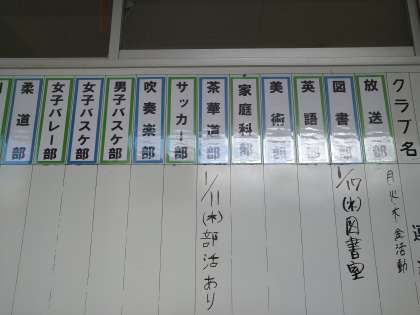 クラブ名
放送部
月火木金活動
図書部
1/17(木)図書室
英語部
美術部
家庭科部
茶華道部
1/11(木)部活あり
サッカー部
吹奏楽部
男子バスケ部
女子バスケ部
女子バレー部
柔道部